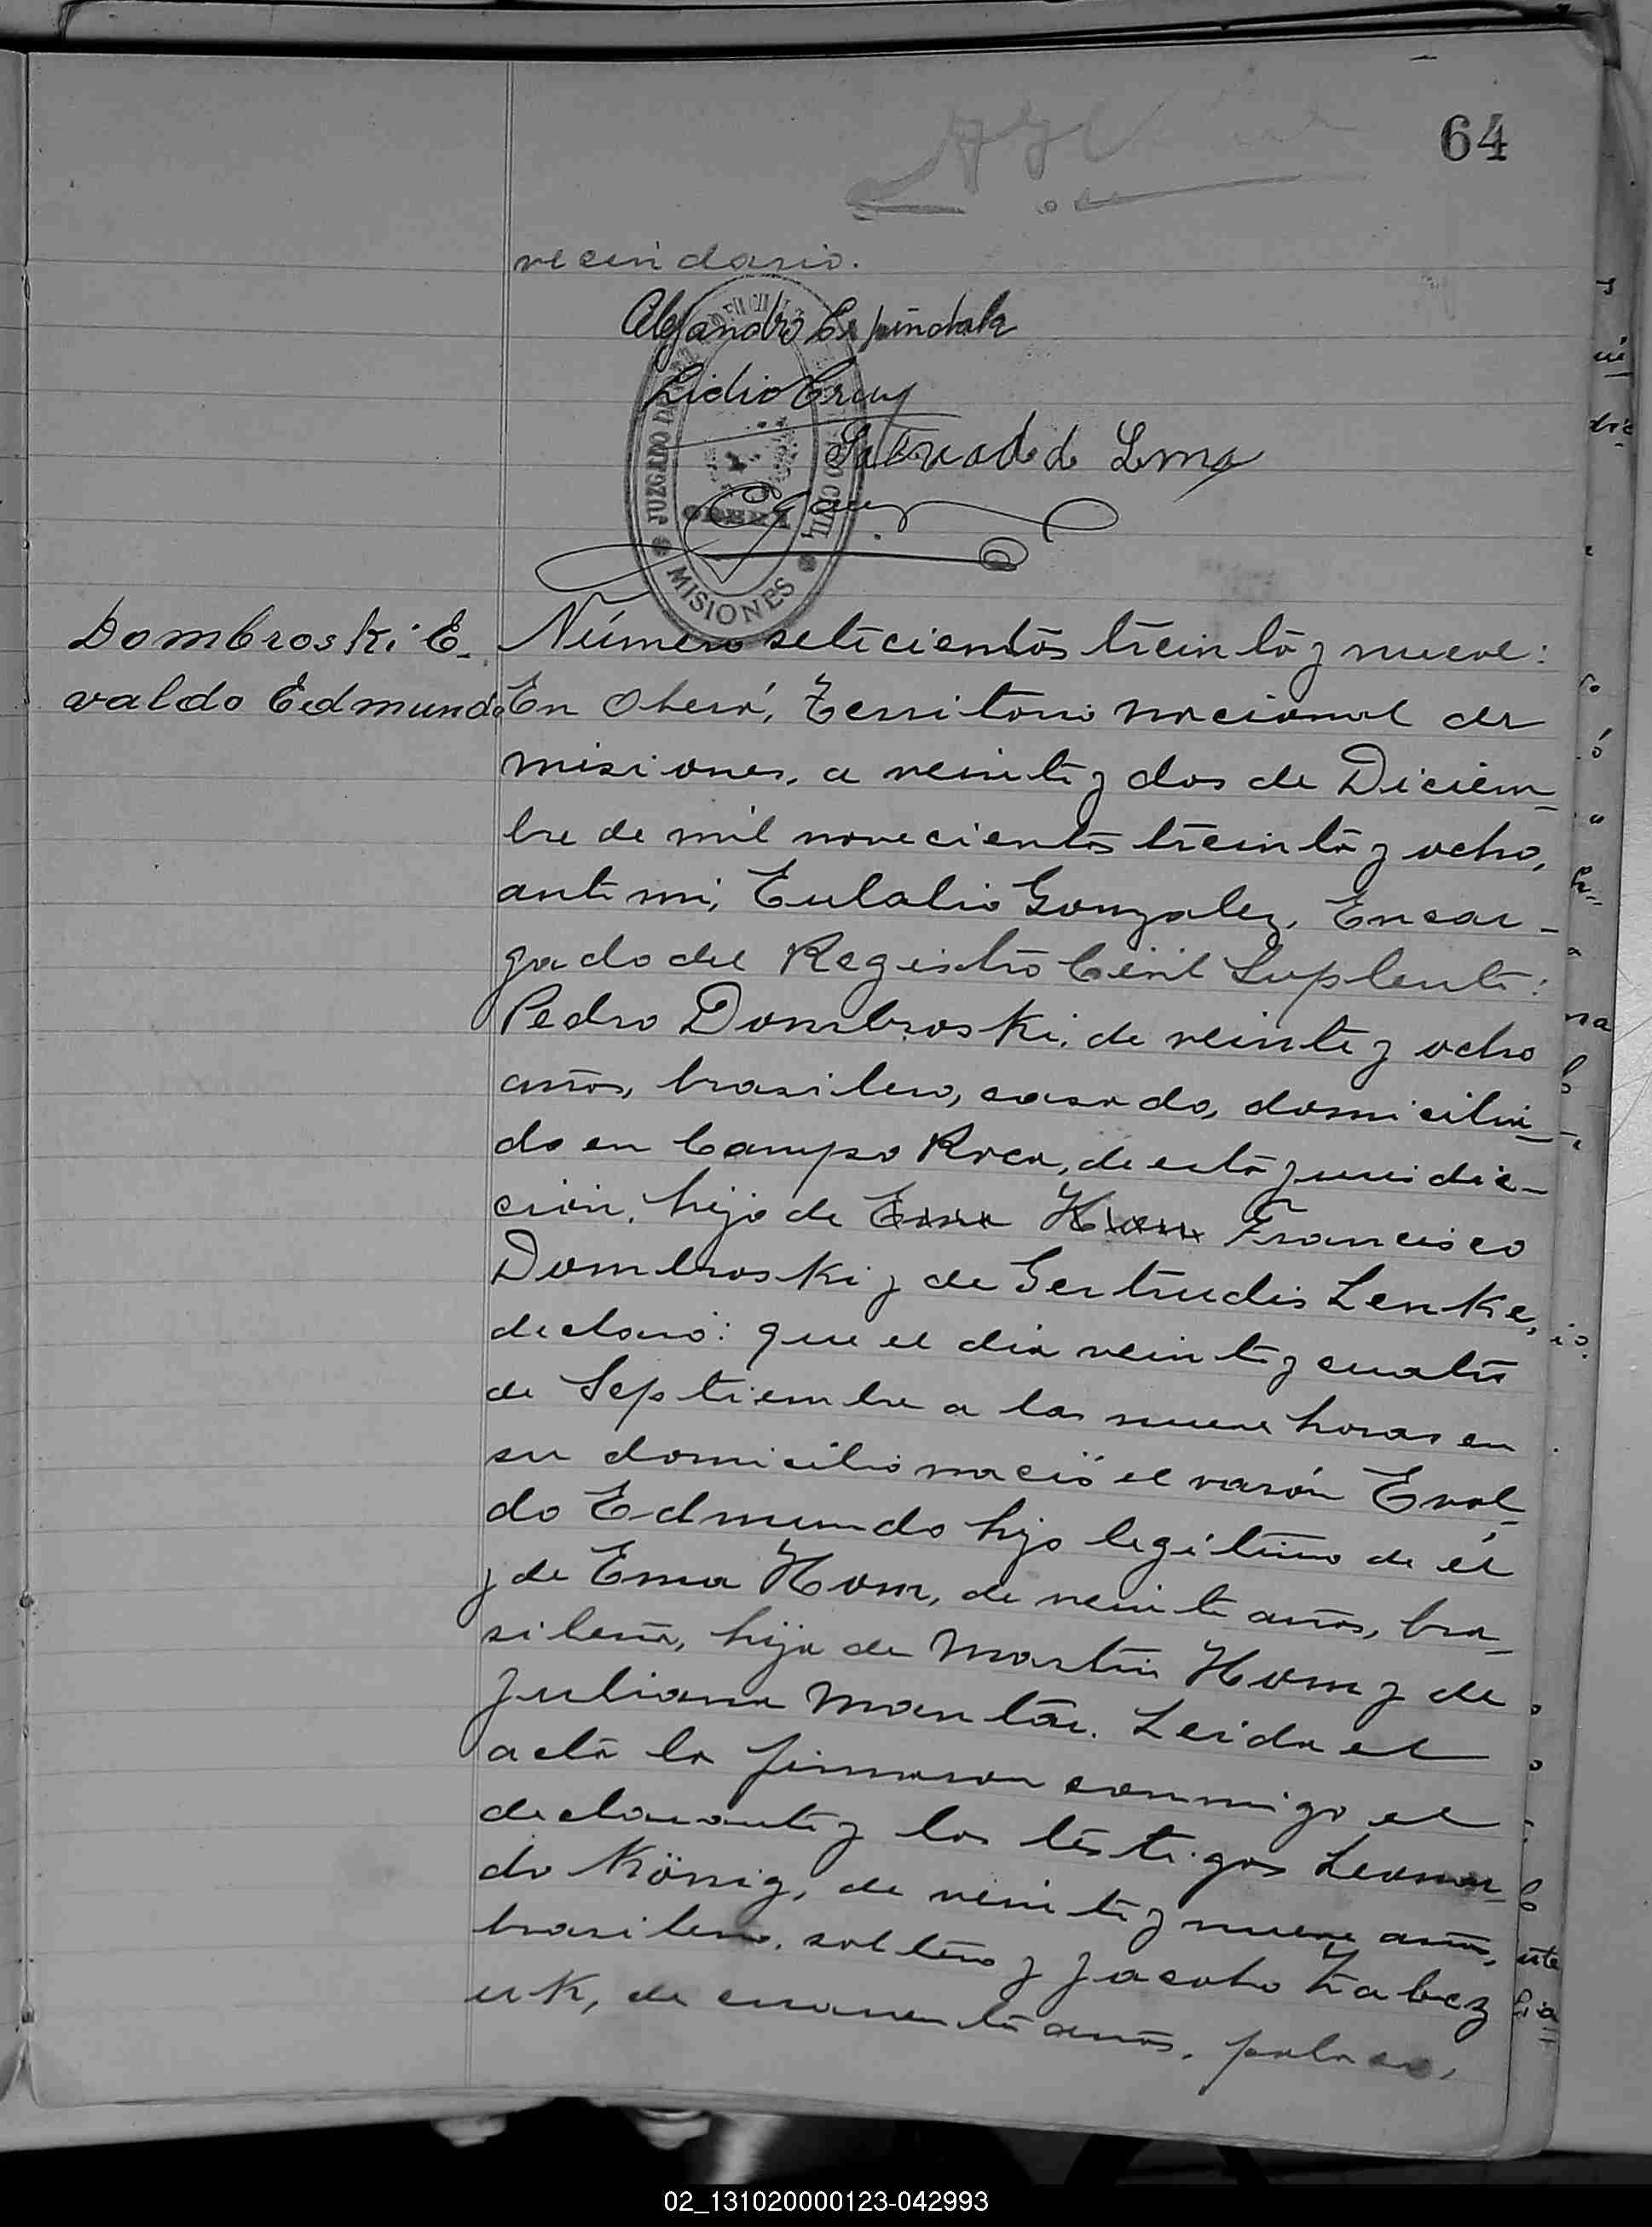 64
vecindario.
Alejandro Espindola
Lidio Cruz
de Lima
JUZGADO DE PAZ
CIVIL
OBERÁ
MISIONES
Dombroski E-
valdo Edmundo
Número setecientos treinta y nueve:
En Oberá, Territorio nacional de
misiones, a veinte y dos de Diciem-
bre de mil novecientos treinta y ocho,
ante mi, Eulalio Gonzalez, Encar-
gado del Registro Civil Suplente:
Pedro Dombroski, de veinte y ocho
años, brasilero, casado, domicilia-
do en Campo Roca, de esta juridic-
ción, hijo de Ema Hom Francisco
Dombroski y de Gertrudis Lenke,
declaró: que el dia veinte y cuatro
de Septiembre a las nueve horas en
su domicilio nació el varón Eval-
do Edmundo hijo legitimo de él
y de Ema Hom, de veinte años, bra-
silera, hija de Martin Hom y de
Juliana Mantai. Leida el
acta la firmaron conmigo el
declarante y los testigos Leonar-
do König, de veinte y nueve años,
brasilero, soltero y Jacobo Zabcz
uk, de cuarenta años, polaco,
02_131020000123-042993